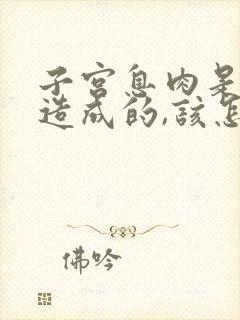 子宫息肉是
造成的,該怎
佛吟